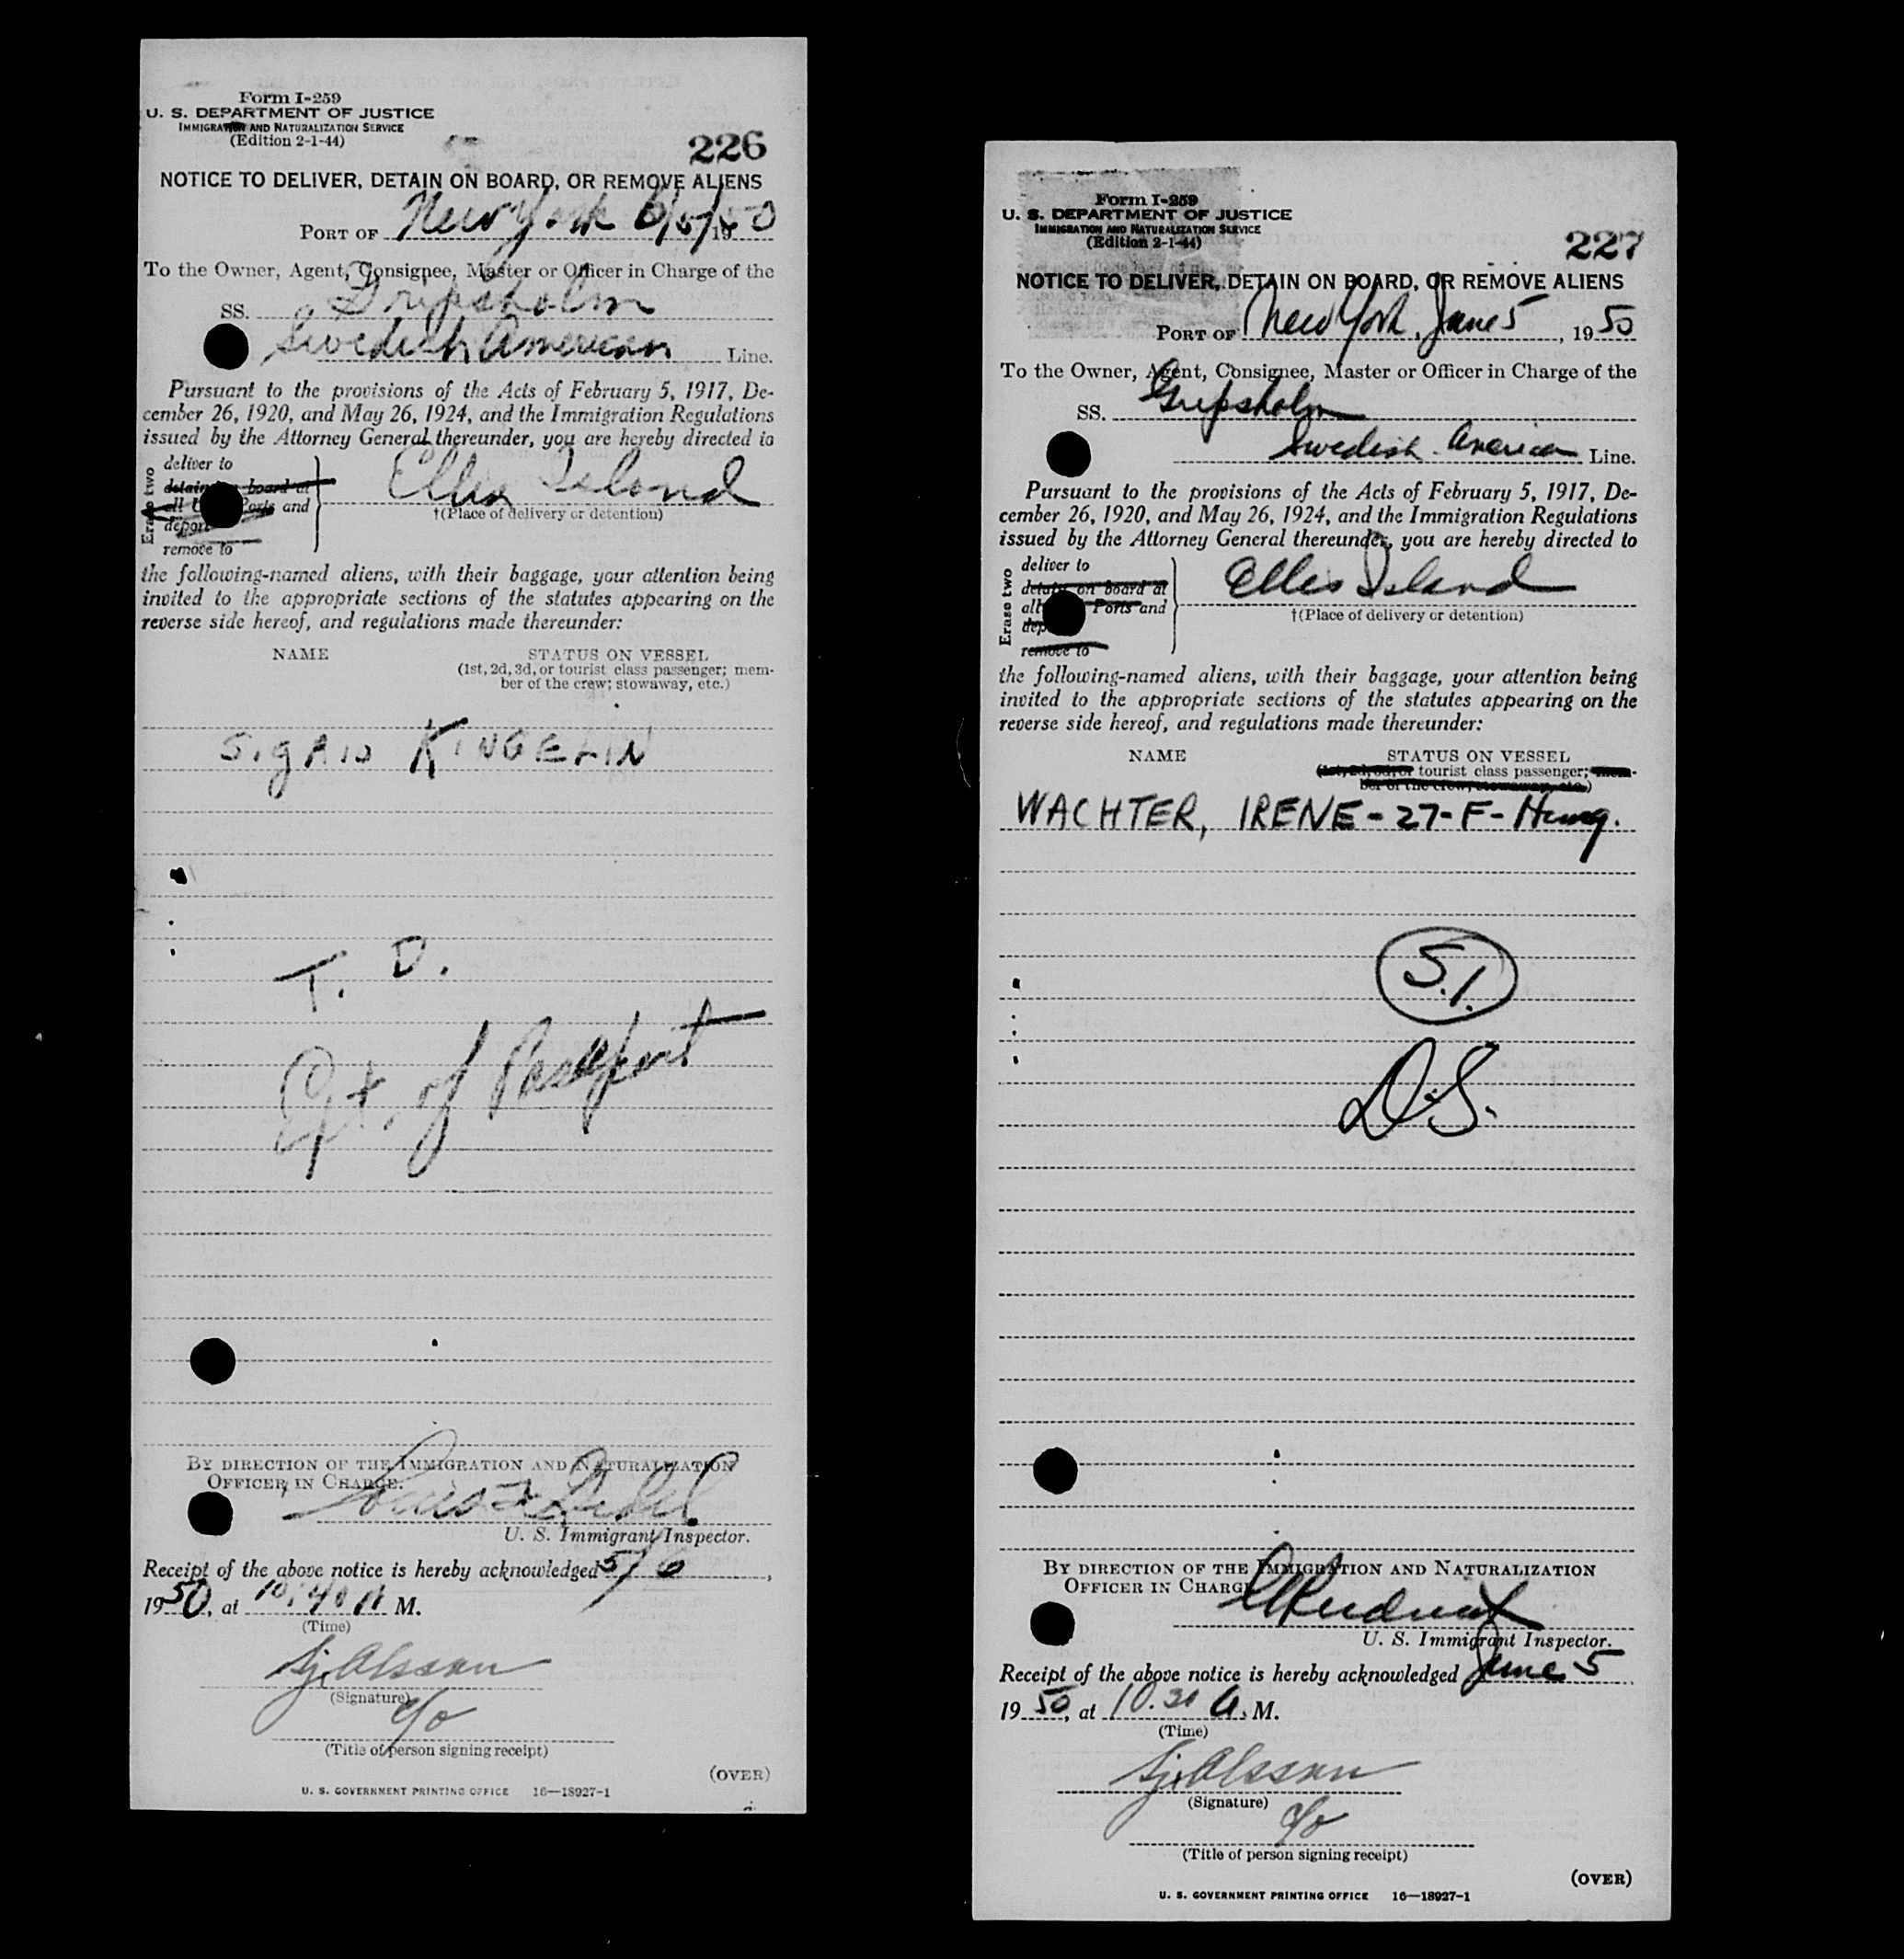 Form I-259
U. S. DEPARTMENT OF JUSTICE
IMMIGRATION AND NATURALIZATION SERVICE
(Edition 2-1-44)
226
NOTICE TO DELIVER, DETAIN ON BOARD, OR REMOVE ALIENS
PORT OF New York 6/5/1950
To the Owner, Agent, Consignee, Master or Officer in Charge of the
SS. Gripsholm
Swedish American Line.
Pursuant to the provisions of the Acts of February 5, 1917, De-
cember 26, 1920, and May 26, 1924, and the Immigration Regulations
issued by the Attorney General thereunder, you are hereby directed to
Erase two
deliver to
detain on board at
all U Ports and
deport
remove to
Ellis Island
†(Place of delivery or detention)
the following-named aliens, with their baggage, your attention being
invited to the appropriate sections of the statutes appearing on the
reverse side hereof, and regulations made thereunder:
NAME STATUS ON VESSEL
(1st, 2d, 3d, or tourist class passenger; mem-
ber of the crew; stowaway, etc.)
SIgRID KINGELIN
T. D.
of Passport
BY DIRECTION OF THE IMMIGRATION AND NATURALIZATION
OFFICER IN CHARGE.
U. S. Immigrant Inspector.
Receipt of the above notice is hereby acknowledged 5/6,
1950, at 10:40 A M.
(Time)
Sj. Olsson
(Signature)
c/o
(Title of person signing receipt)
(OVER)
U. S. GOVERNMENT PRINTING OFFICE 16—18927-1
Form I-259
U. S. DEPARTMENT OF JUSTICE
IMMIGRATION AND NATURALIZATION SERVICE
(Edition 2-1-44)
227
NOTICE TO DELIVER, DETAIN ON BOARD, OR REMOVE ALIENS
PORT OF New York, June 5, 1950
To the Owner, Agent, Consignee, Master or Officer in Charge of the
SS. Gripsholm
Swedish American Line.
Pursuant to the provisions of the Acts of February 5, 1917, De-
cember 26, 1920, and May 26, 1924, and the Immigration Regulations
issued by the Attorney General thereunder, you are hereby directed to
Erase two
deliver to
detain on board at
all Ports and
dep
remove to
Ellis Island
†(Place of delivery or detention)
the following-named aliens, with their baggage, your attention being
invited to the appropriate sections of the statutes appearing on the
reverse side hereof, and regulations made thereunder:
NAME STATUS ON VESSEL
(1st, 2d, 3d, or tourist class passenger; mem-
ber of the crew; stowaway, etc.)
WACHTER, IRENE - 27 - F - Hung.
S.I.
D.S.
BY DIRECTION OF THE IMMIGRATION AND NATURALIZATION
OFFICER IN CHARGE
U. S. Immigrant Inspector.
Receipt of the above notice is hereby acknowledged June 5
1950, at 10.30 A. M.
(Time)
Sj. Olsson
(Signature)
c/o
(Title of person signing receipt)
(OVER)
U. S. GOVERNMENT PRINTING OFFICE 16—18927-1